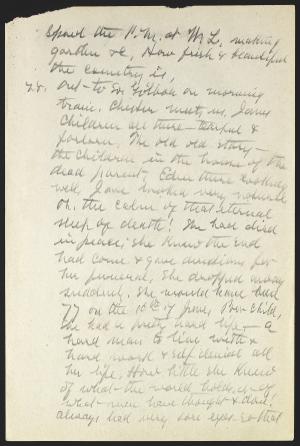 Spend the P.M. at Mt L. making
garden &c. How fresh & beautiful
the country is,
28. Out to So. Gilboa on morning
train. Chester meets us. Janes
Children all there – tearful &
forlorn. The old old story –
the children in the house of the
dead parent, Eden there looking
well, Jane looked very natural
oh, the calm of that eternal
sleep of death! She had died
in peace; she knew the end
had come & gave directions for
her funeral. She dropped away
suddenly. She would have been
77 on the 10th of June, Poor Child,
She had a pretty hard life – a
hard man to live with &
hard work & self denial all
her life. How little she knew
of what the world holds, & of
what men have thought & done.
always had very sore eyes so that